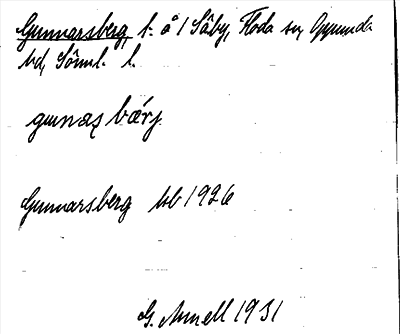 Gunnarsberg, t. å 1 Säby, Floda sn, Oppunda
hd, Sörml. l.
gunaʂ bærj.
Gunnarsberg tsb 1926
G. Annell 1931